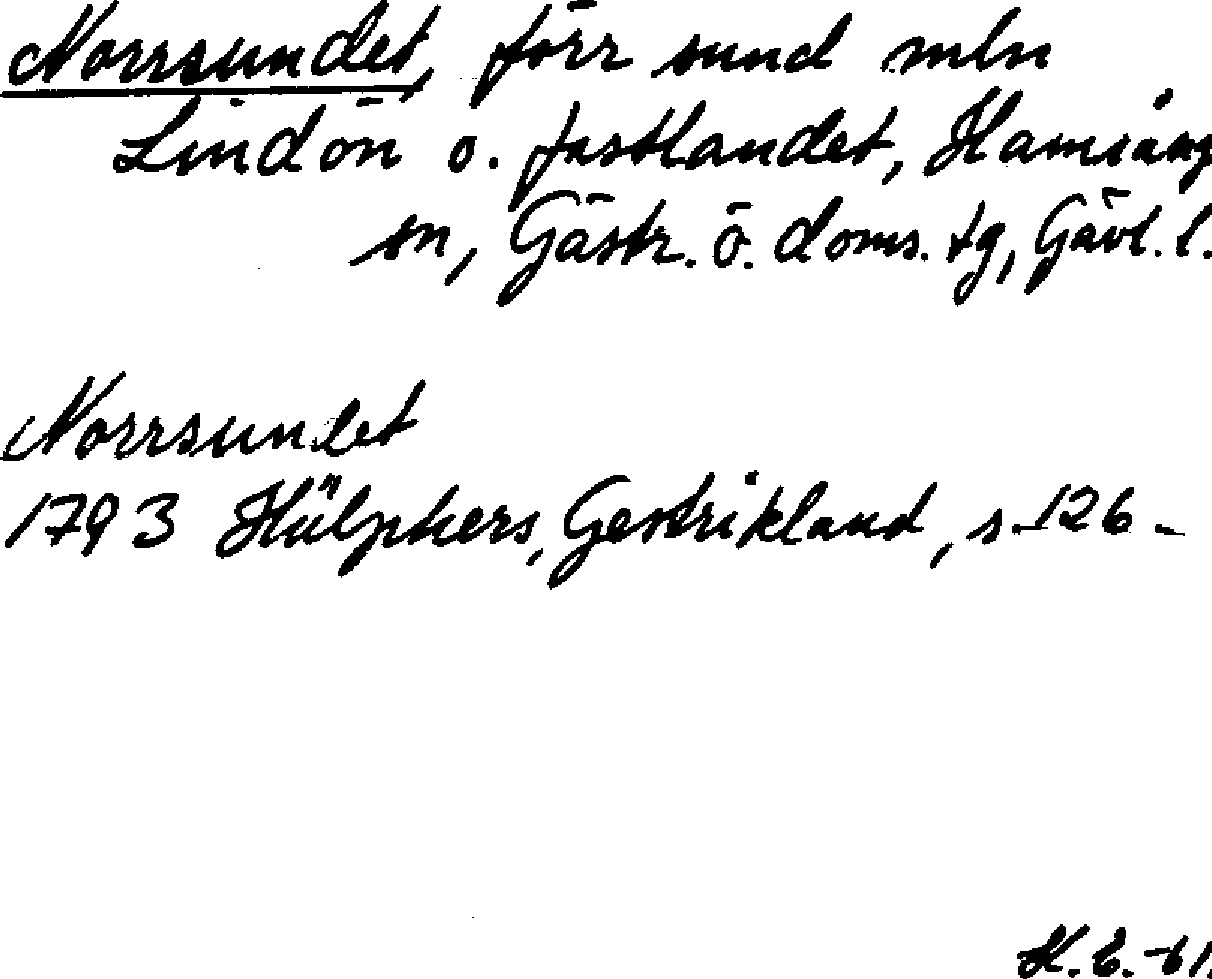 Norrsundet, förr sund mln
Lindön o. fastlandet, Hamrång
sn, Gästr. ö. doms. tg, Gävl. l.
Norrsundet
1793 Hülphers, Gestrikland, s. 126 -
H. E. -61.